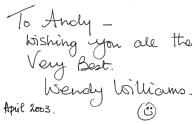 To Andy -
Wishing you all the
Very Best.
Wendy Williams.
April 2003.